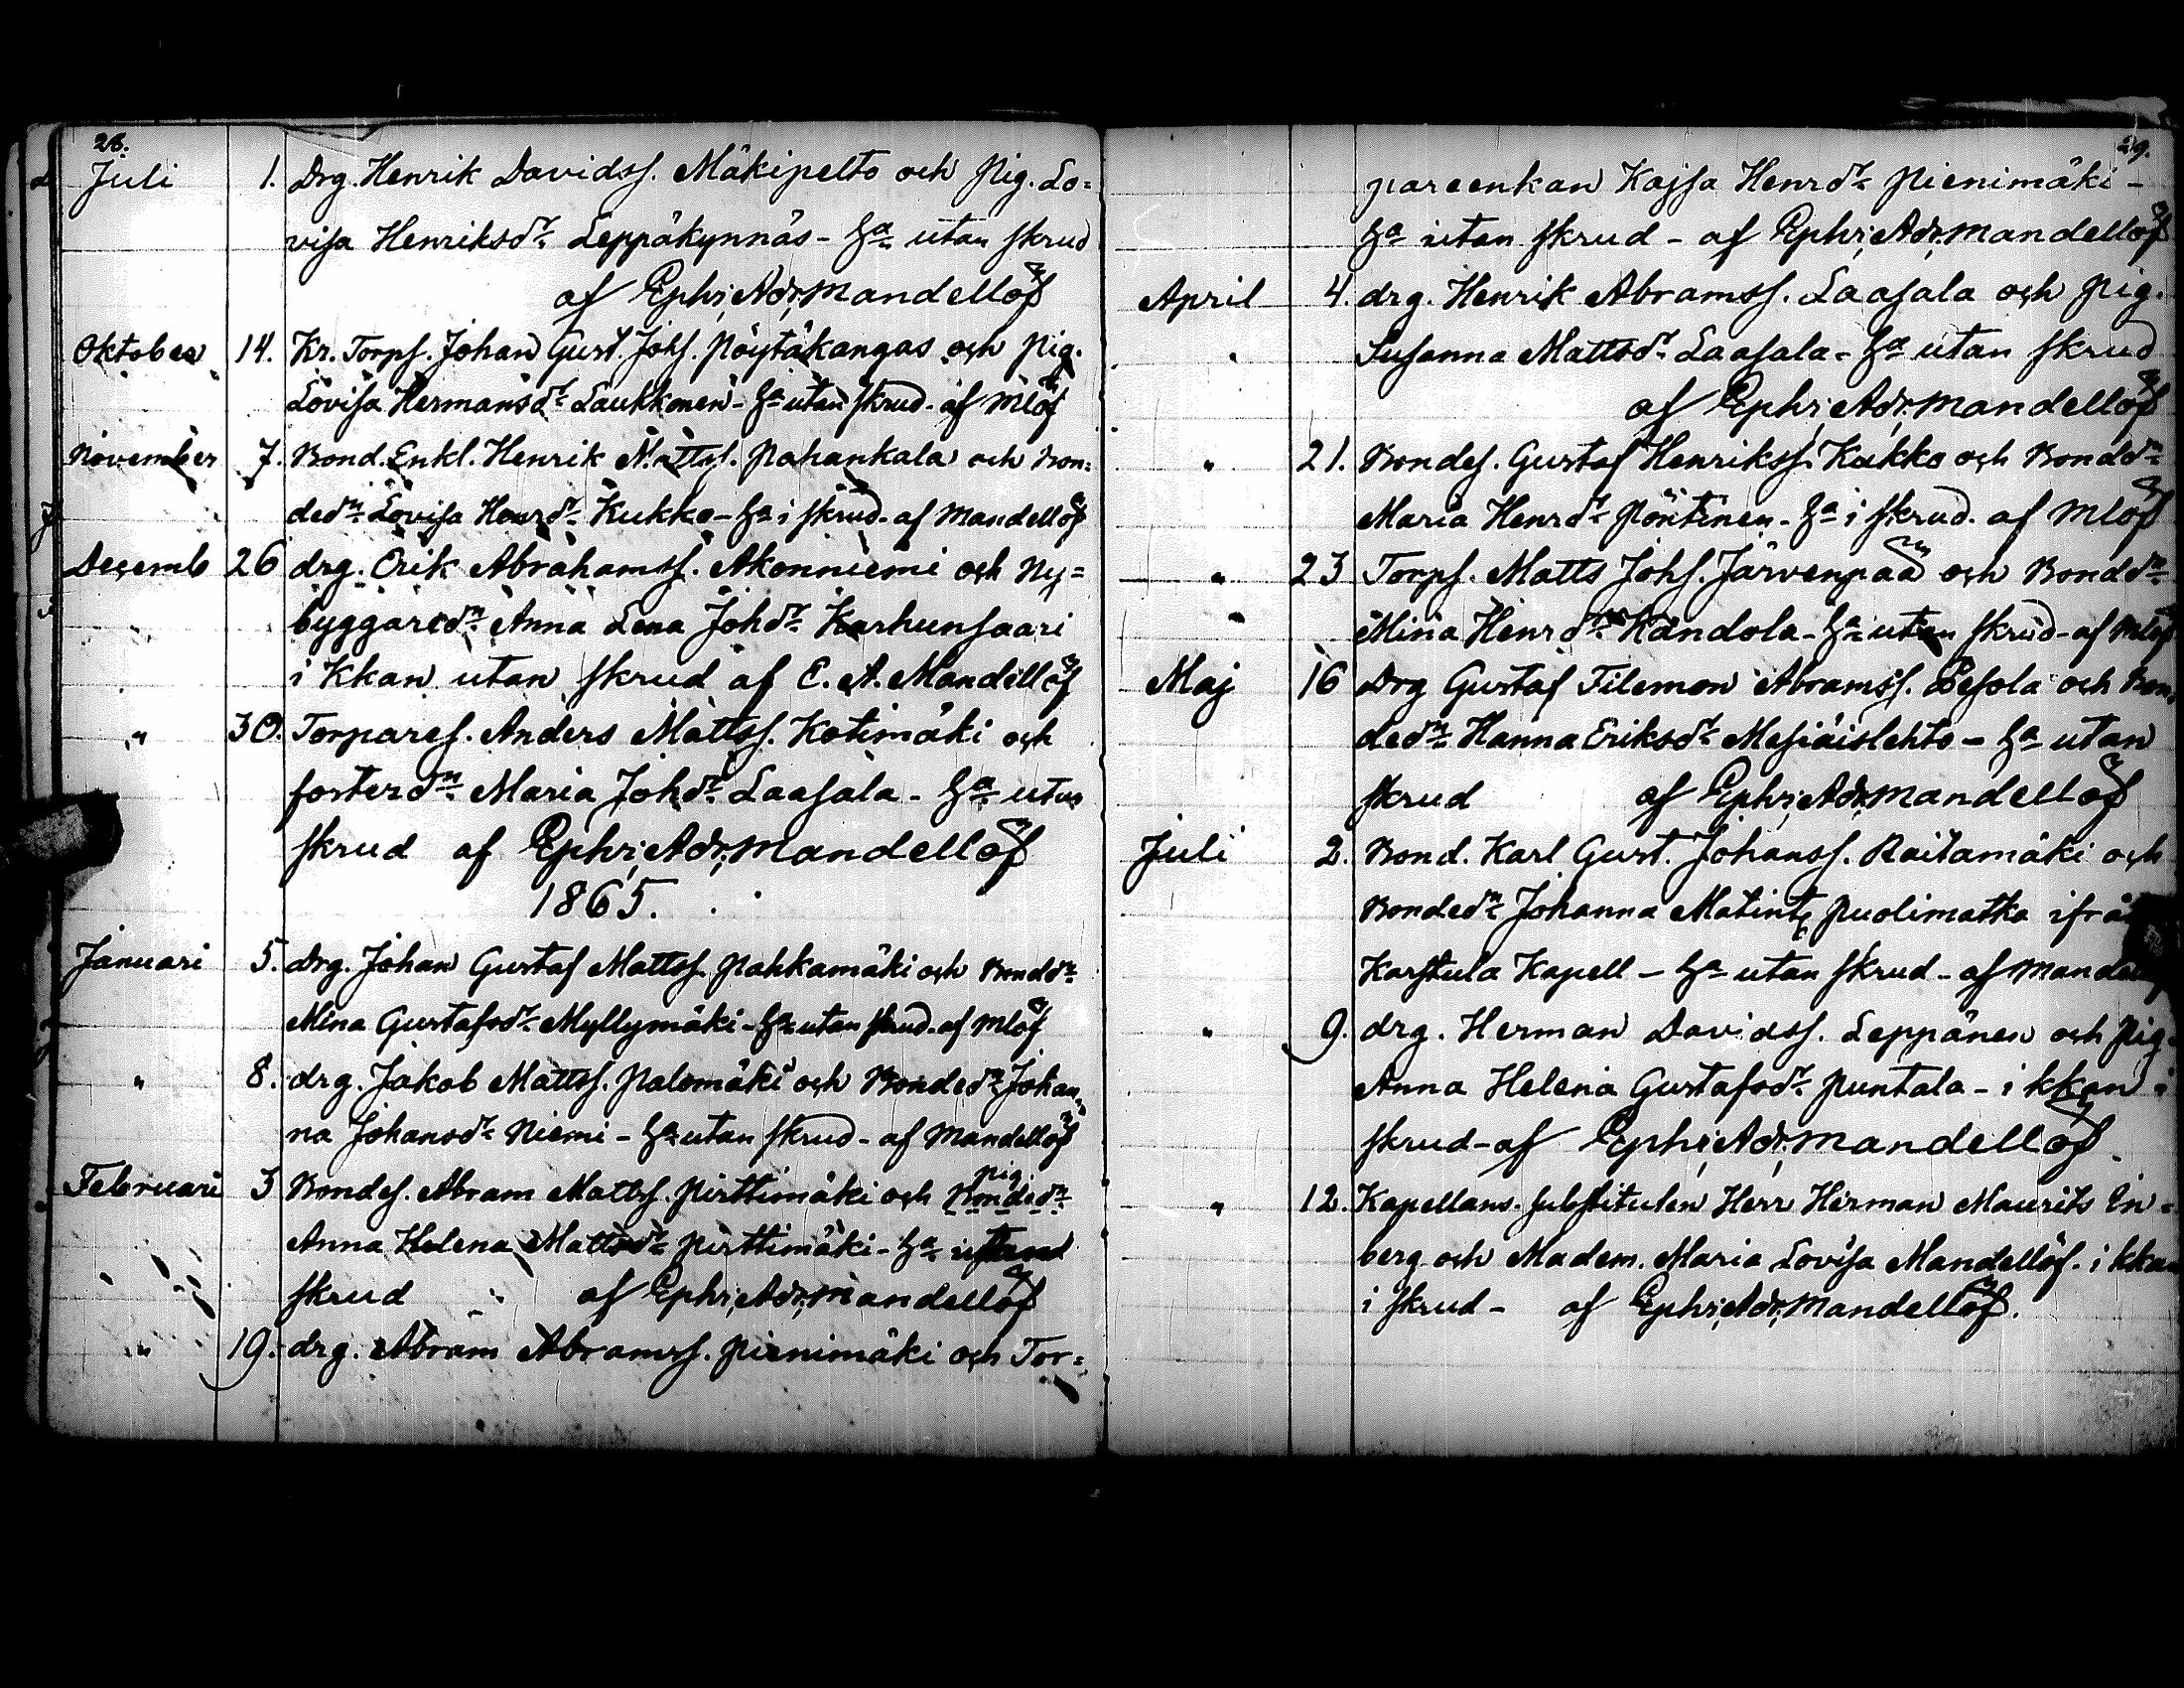 28.
Juli 1. Drg. Henrik Davidss. Mäkipelto och Pig. Lo=
visa Henriksdr. Leppäkynnäs - hma utan skrud
af Ephr. Adr. Mandellöf
Oktober 14. Kr. Torps. Johan Gust. Johs. Pöytäkangas och Pig.
Lovisa Hermansdr. Laukkonen - hma utan skrud. af Mlöf
November 7. Bond. Enkl. Henrik Mattss. Pahankala och Bon=
dedn. Lovisa Henrdr. Kukko - hma i skrud. af Mandellöf
Decemb 26 drg. Erik Abrahamss. Akonniemi och Ny=
byggaredn. Anna Lena Johdr. Karhunsaari
i Kkan utan skrud af E. A. Mandellöf
" 30. Torpares. Anders Mattss. Kotimäki och
fosterdn. Maria Johdr. Laasala - hma utan
skrud af Ephr. Adr. Mandellöf
1865.
Januari 5. drg. Johan Gustaf Mattss. Pahkamäki och Bonddn.
Mina Gustafsdr. Myllymäki - hma utan skrud. af Mlöf
" 8. drg. Jakob Mattss. Palomäki och Bondedn. Johan=
na Johansdr. Niemi - hma utan skrud - af Mandellöf
Februari 3 Bondes. Abram Mattss. Pirttimäki och Pig. Bondedn.
Anna Helena Mattsdr. Pirttimäki - hma utan
skrud af Ephr. Adr. Mandellöf
" 19. drg. Abram Abramss. Pienimäki och Tor=
29.
pareenkan Kajsa Henrdr. Pienimäki -
hma utan skrud - af Ephr. Adr. Mandellöf
April 4. drg. Henrik Abramss. Laasala och Pig.
Susanna Mattsdr. Laasala - hma utan skrud
af Ephr. Adr. Mandellöf
" 21. Bondes. Gustaf Henrikss. Kukko och Bonddn.
Maria Henrdr. Pöntinen - hma i skrud. af Mlöf
" 23 Torps. Matts Johs. Järvenpää och Bonddn.
Mina Henrdr. Kandola - hma utan skrud - af Mlöf
Maj 16 Drg Gustaf Filemon Abramss. Pesola och Bon=
dedn. Hanna Eriksdr. Mesiäislehto - hma utan
skrud af Ephr. Adr. Mandellöf
Juli 2. Bond. Karl Gust. Johanss. Raitamäki och
Bondedn. Johanna Matint. Puolimatka ifrån
Karstula Kapell - hma utan skrud - af
" 9. drg. Herman Davidss. Leppänen och Pig.
Anna Helena Gustafsdr. Puntala - i kkan i
skrud - af Ephr. Adr. Mandellöf
" 12. Kapellans-substituten Herr Herman Maurits En=
berg och Madem. Maria Lovisa Mandellöf. i kkan
i skrud - af Ephr. Adr. Mandellöf.